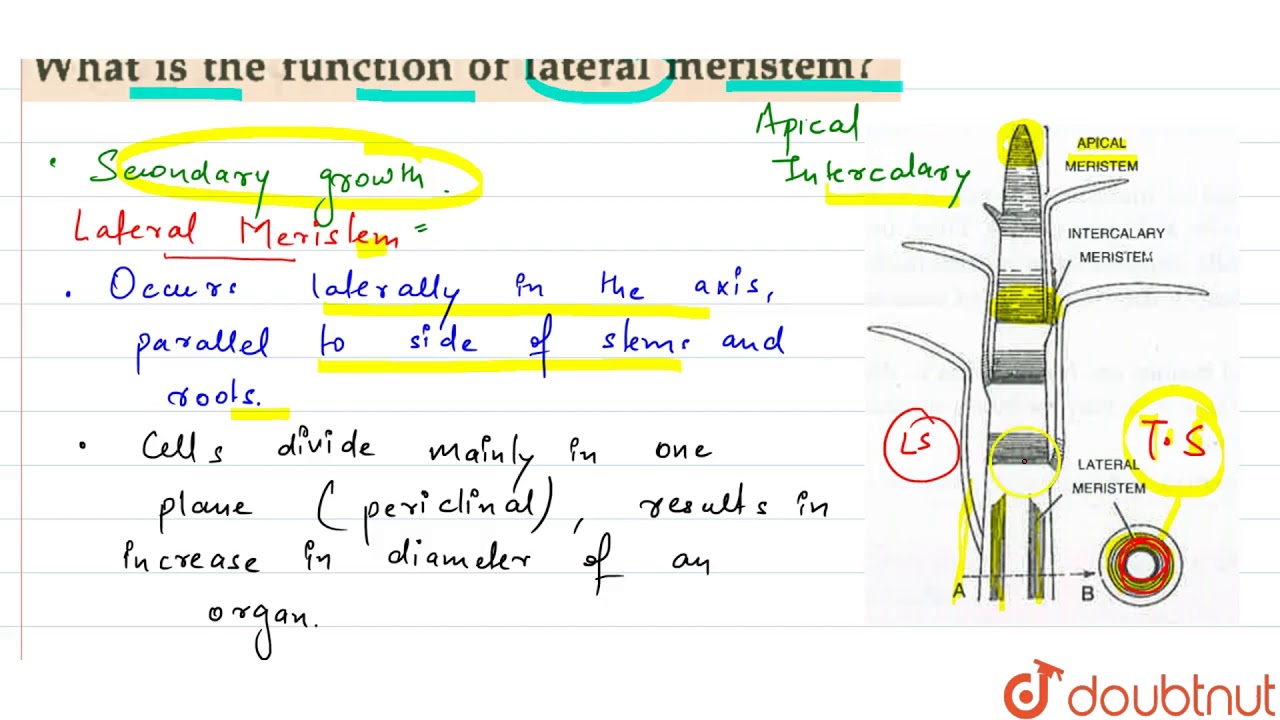 What is the function of lateral meristem?
Apical
Intercalary
• Secondary growth.
Lateral Meristem =
• Occurs laterally in the axis,
parallel to side of stems and
roots.
• Cells divide mainly in one
plane (periclinal), results in
increase in diameter of an
organ.
APICAL
MERISTEM
INTERCALARY
MERISTEM
LS
T.S
LATERAL
MERISTEM
A
B
doubtnut